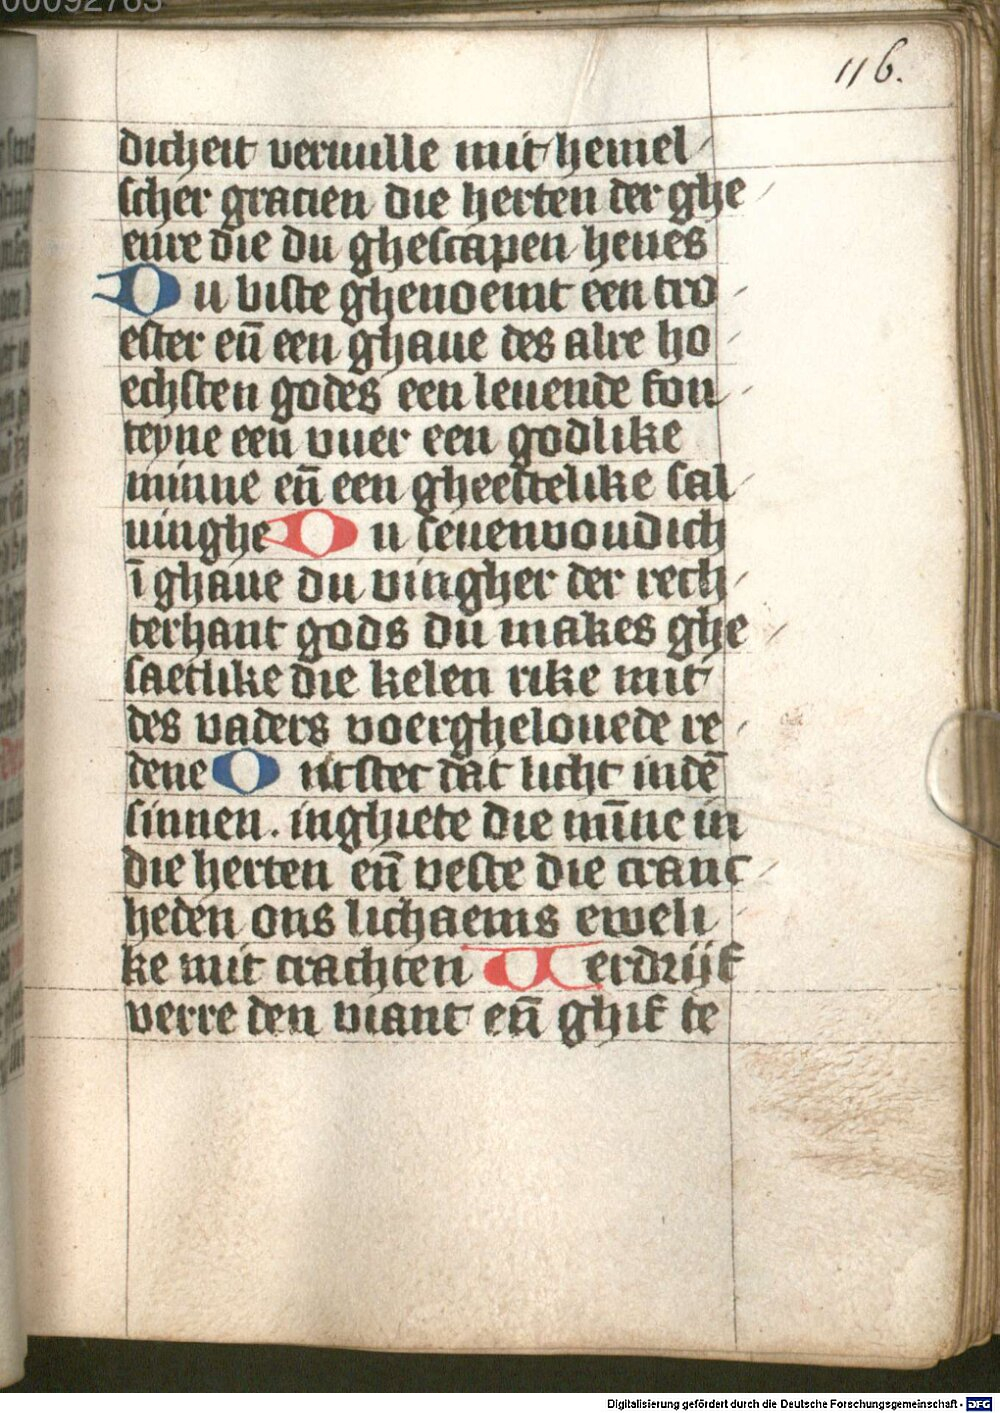 00092763
116.
dicheit veruulle mit hemel
scher gracien die herten der ghe
enre die du ghescapen heues
Du biste ghenoemt een tro
ester eñ een ghaue des alre ho
echsten godes een leuende fon
teyne een vuer een godlike
minne eñ een gheestelike sal
uinghe Du seuenvoudich
ī ghaue du vingher der rech
terhant gods du makes ghe
saetlike die kelen rike mit
des vaders voerghelouede re
dene Ontstec dat licht indē
sinnen. inghiete die mīne in
die herten eñ veste die cranc
heden ons lichaems eweli
ke mit crachten Verdrijf
verre den viant eñ ghif te
Digitalisierung gefördert durch die Deutsche Forschungsgemeinschaft - DFG